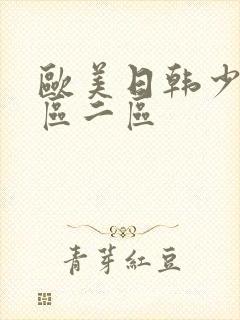 歐美日韩少
區二區
青芽紅豆